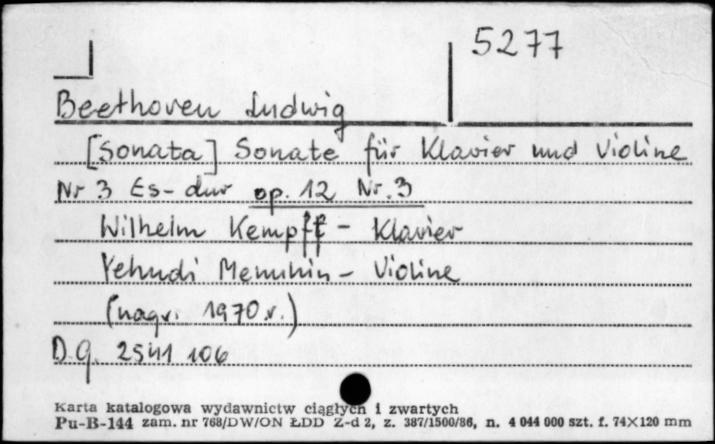 5277
Beethoven Ludwig
[Sonata] Sonate für Klavier und Violine
Nr 3 Es-dur op. 12 Nr. 3
Wilhelm Kempff - Klavier
Yehudi Menuhin - Violine
(nagr. 1970 r.)
D.g. 2541 106
Karta katalogowa wydawnictw ciągłych i zwartych
Pu-B-144 zam. nr 768/DW/ON ŁDD Z-d 2, z. 387/1500/86, n. 4 044 000 szt. f. 74×120 mm